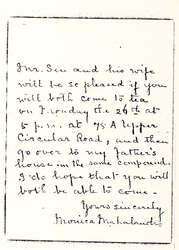 Mr. Sen and his wife
will be so pleased if you
will both come to tea
on Monday the 26th at
5 p.m. at 78 A Upper
Circular Road, and then
go over to my father's
house in the same compound.
I do hope that you will
both be able to come -
Yours sincerely
Monica Mahalanobis